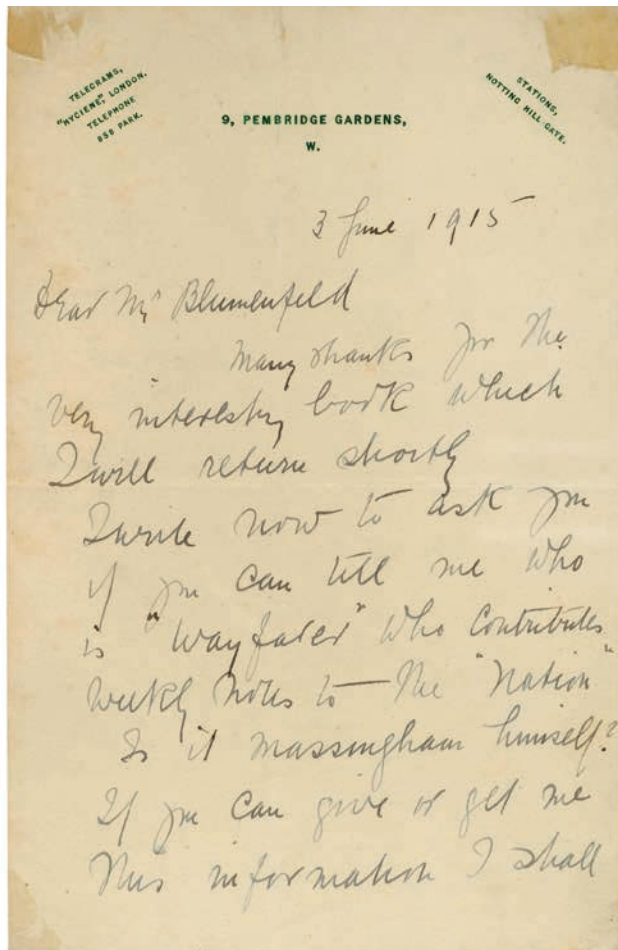 TELEGRAMS,
"HYGIENE," LONDON.
TELEPHONE
858 PARK.
9, PEMBRIDGE GARDENS,
W.
STATIONS,
NOTTING HILL GATE.
3 June 1915
Dear Mr Blumenfeld
Many thanks for the
very interesting book which
I will return shortly
I write now to ask you
if you can tell me who
is "Wayfarer" who contributes
weekly notes to the "Nation"
Is it Massingham himself?
If you can give or get me
this information I shall